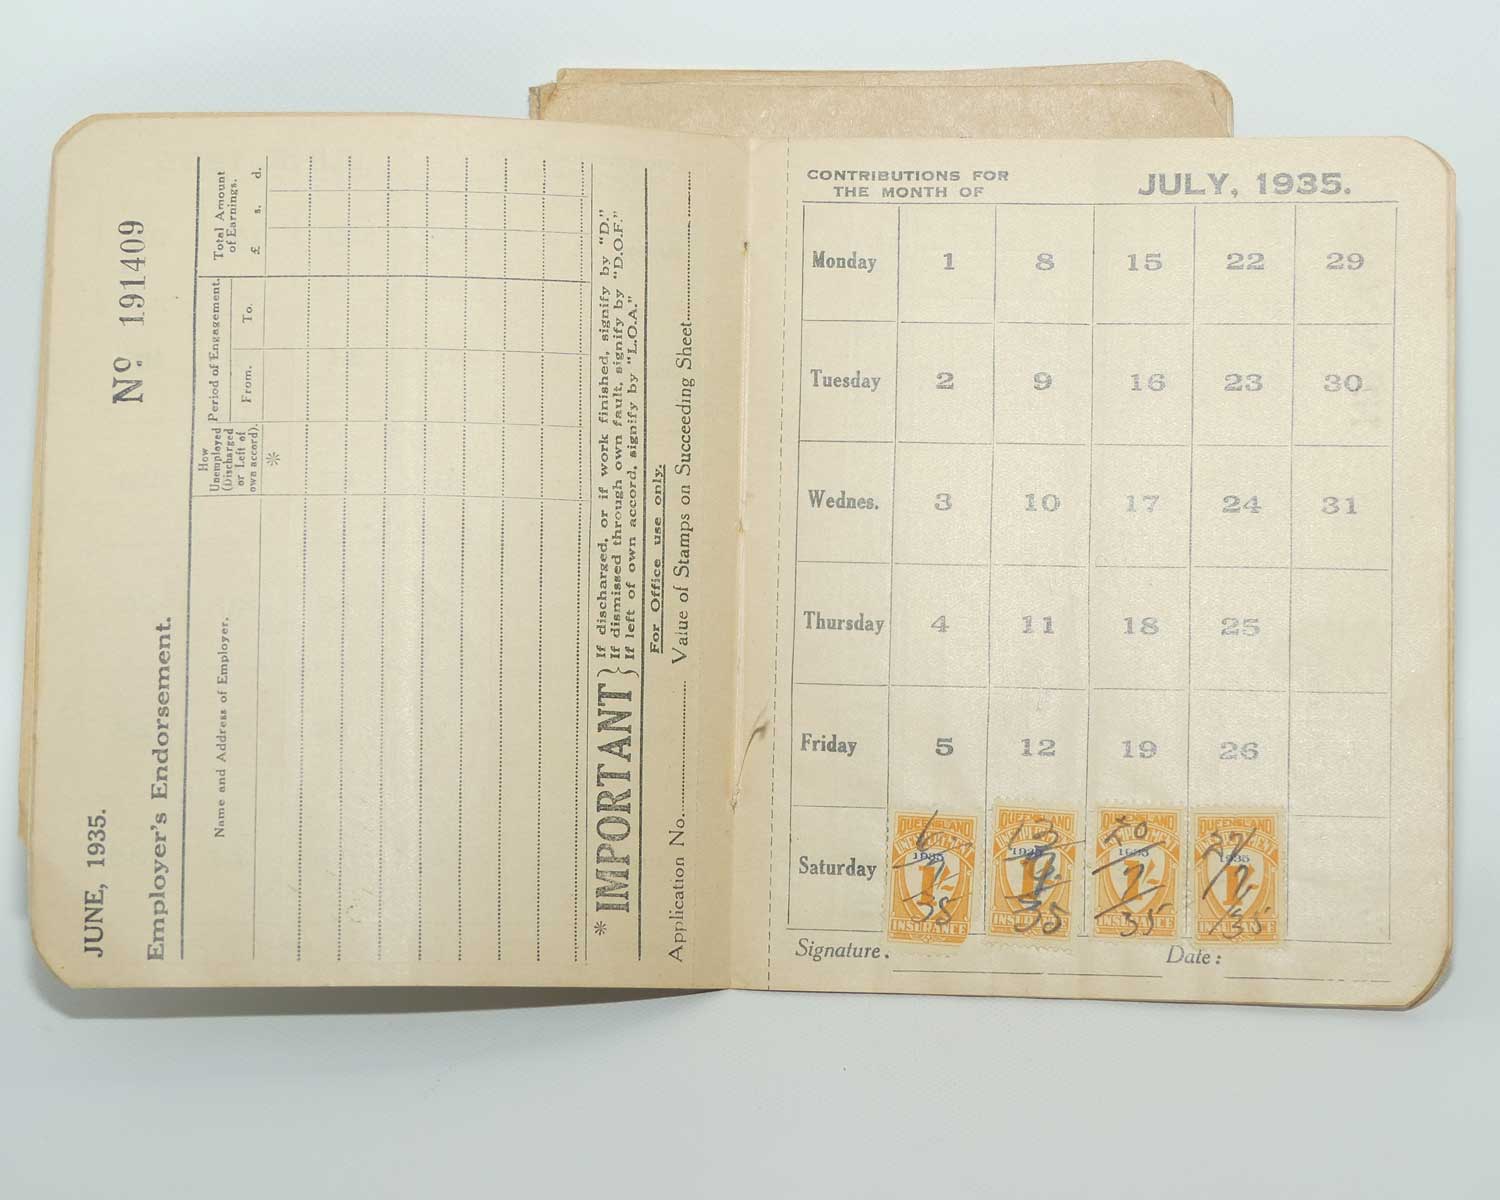 JUNE, 1935.
Nº 191409
Employer's Endorsement.
Name and Address of Employer.
How
Unemployed
(Discharged
or Left of
own accord).
*
Period of Engagement.
From.
To.
Total Amount
of Earnings.
£ s. d.
* IMPORTANT
If discharged, or if work finished, signify by "D."
If dismissed through own fault, signify by "D.O.F."
If left of own accord, signify by "L.O.A."
For Office use only.
Application No. Value of Stamps on Succeeding Sheet
CONTRIBUTIONS FOR
THE MONTH OF
JULY, 1935.
Monday 1 8 15 22 29
Tuesday 2 9 16 23 30
Wednes. 3 10 17 24 31
Thursday 4 11 18 25
Friday 5 12 19 26
Saturday
QUEENSLAND QUEENSLAND QUEENSLAND QUEENSLAND
1935 1935 1935 1935
1/- 1/- 1/- 1/-
INSURANCE INSURANCE INSURANCE INSURANCE
6 13 20 27
7 7 7 7
35 35 35 35
Signature. Date: